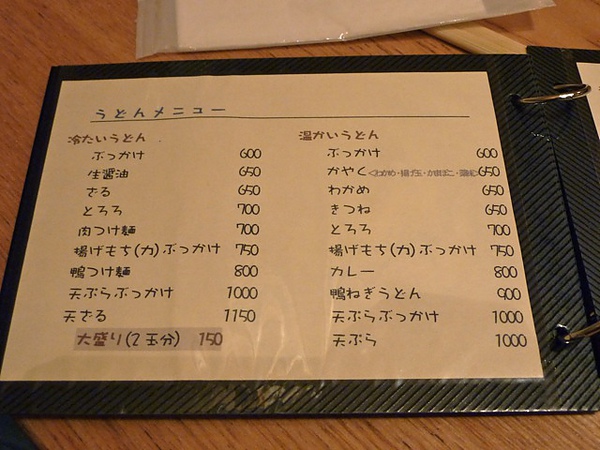 うどんメニュー
冷たいうどん
ぶっかけ 600
生醤油 650
ざる 650
とろろ 700
肉つけ麺 700
揚げもち(力)ぶっかけ 750
鴨つけ麺 800
天ぷらぶっかけ 1000
天ざる 1150
大盛り(2玉分) 150
温かいうどん
ぶっかけ 600
かやく 650
わかめ 650
きつね 650
とろろ 700
揚げもち(力)ぶっかけ 750
カレー 800
鴨ねぎうどん 900
天ぷらぶっかけ 1000
天ぷら 1000